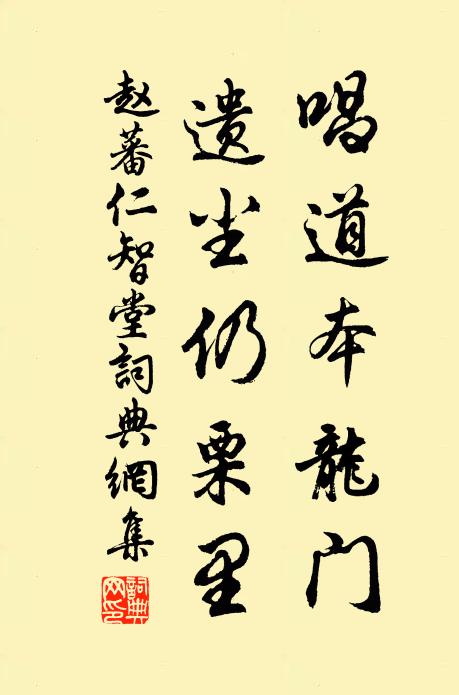 唱道本龍门
遗尘仍栗里
赵蕃仁智堂詞典網集
詞典网印